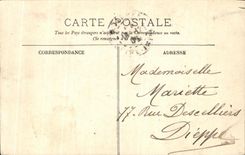 CARTE POSTALE
Tous les Pays étrangers n'acceptent pas la Correspondance au recto.
(Se renseigner
CORRESPONDANCE
ADRESSE
Mademoiselle
Mariette
77 Rue Descelliers
Dieppe